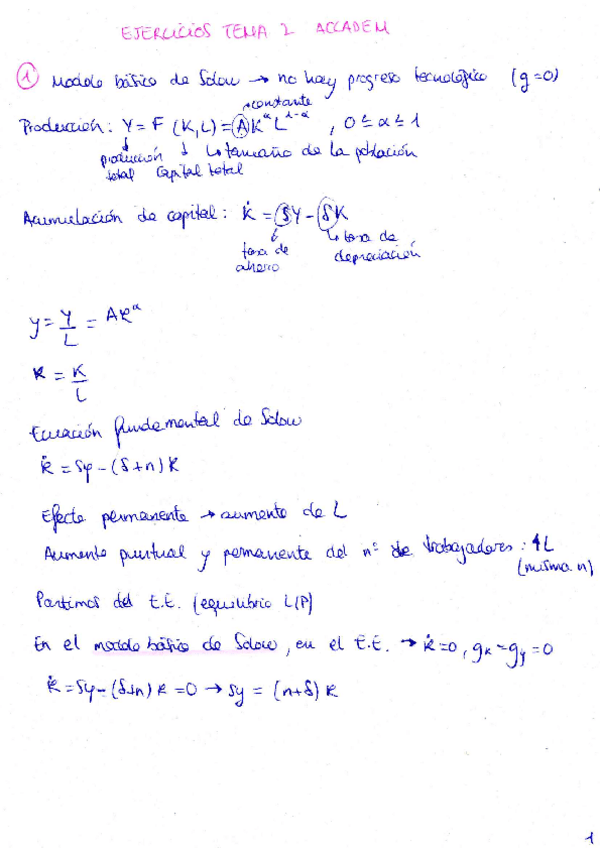 EJERCICIOS TEMA 2 ACCADEM
① Modelo básico de Solow → no hay progreso tecnológico (g=0)
constante
Producción: Y = F (K,L) = AK^α L^1-α , 0 ≤ α ≤ 1
producción total
Capital total
tamaño de la población
Acumulación de capital: K̇ = sY - δK
tasa de ahorro
tasa de depreciación
y = Y/L = Ak^α
k = K/L
Ecuación fundamental de Solow
k̇ = sy - (δ+n) k
Efecto permanente → aumento de L
Aumento puntual y permanente del nº de trabajadores: ↑L
(misma n)
Partimos del E.E. (equilibrio L/P)
En el modelo básico de Solow, en el E.E. → k̇=0, gk = gy = 0
k̇ = sy - (δ+n) k = 0 → sy = (n+δ) k
1